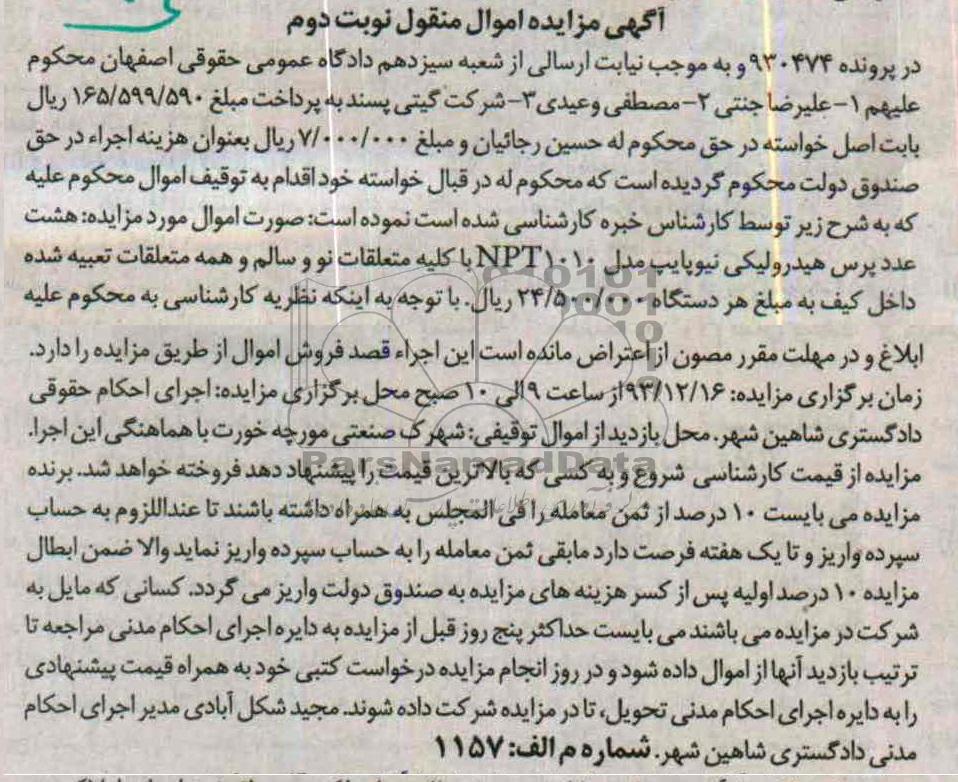 آگهی مزایده اموال منقول نوبت دوم
در پرونده ۹۳۰۴۷۴ و به موجب نیابت ارسالی از شعبه سیزدهم دادگاه عمومی حقوقی اصفهان محکوم
علیهم ۱-علیرضا جنتی ۲-مصطفی وعیدی ۳-شرکت گیتی پسند به پرداخت مبلغ ۱۶۵/۵۹۹/۵۹۰ ریال
بابت اصل خواسته در حق محکوم له حسین رجائیان و مبلغ ۷/۰۰۰/۰۰۰ ریال بعنوان هزینه اجراء در حق
صندوق دولت محکوم گردیده است که محکوم له در قبال خواسته خود اقدام به توقیف اموال محکوم علیه
که به شرح زیر توسط کارشناس خبره کارشناسی شده است نموده است: صورت اموال مورد مزایده: هشت
عدد پرس هیدرولیکی نیوپایپ مدل NPT۱۰۱۰ با کلیه متعلقات نو و سالم و همه متعلقات تعبیه شده
داخل کیف به مبلغ هر دستگاه ۲۴/۵۰۰/۰۰۰ ریال. با توجه به اینکه نظریه کارشناسی به محکوم علیه
ابلاغ و در مهلت مقرر مصون از اعتراض مانده است این اجراء قصد فروش اموال از طریق مزایده را دارد.
زمان برگزاری مزایده: ۹۳/۱۲/۱۶ از ساعت ۹ الی ۱۰ صبح محل برگزاری مزایده: اجرای احکام حقوقی
دادگستری شاهین شهر. محل بازدید از اموال توقیفی: شهرک صنعتی مورچه خورت با هماهنگی این اجرا.
مزایده از قیمت کارشناسی شروع و به کسی که بالاترین قیمت را پیشنهاد دهد فروخته خواهد شد. برنده
مزایده می بایست ۱۰ درصد از ثمن معامله را فی المجلس به همراه داشته باشند تا عنداللزوم به حساب
سپرده واریز و تا یک هفته فرصت دارد مابقی ثمن معامله را به حساب سپرده واریز نماید والا ضمن ابطال
مزایده ۱۰ درصد اولیه پس از کسر هزینه های مزایده به صندوق دولت واریز می گردد. کسانی که مایل به
شرکت در مزایده می باشند می بایست حداکثر پنج روز قبل از مزایده به دایره اجرای احکام مدنی مراجعه تا
ترتیب بازدید آنها از اموال داده شود و در روز انجام مزایده درخواست کتبی خود به همراه قیمت پیشنهادی
را به دایره اجرای احکام مدنی تحویل، تا در مزایده شرکت داده شوند. مجید شکل آبادی مدیر اجرای احکام
مدنی دادگستری شاهین شهر. شماره م الف: ۱۱۵۷
ParsNamadData